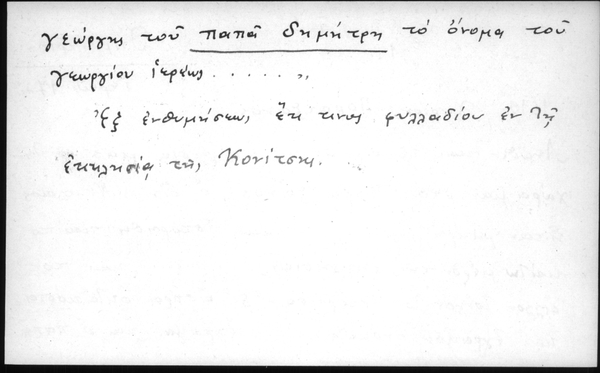 γεώργης τοῦ παπᾶ δημήτρη τό ὄνομα τοῦ
γεωργίου ἱερέως . . . . . . „
Ἐξ ἐνθυμήσεως ἔκ τινος φυλλαδίου ἐν τῇ
ἐκκλησίᾳ τῆς Κονίτσης.